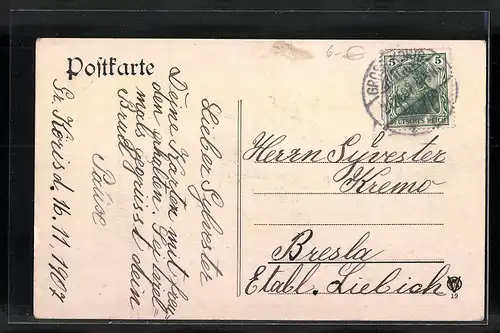 Postkarte
5 5
DEUTSCHES REICH
Lieber Sylvester
Deine Karten mit freu-
den erhalten. Sei tausend-
mals gegrüsst dein
Bruder
Gr. Köris d. 16. 11. 1907
Herrn Sylvester
Kremo
Bresla
Etabl. Liebich
19